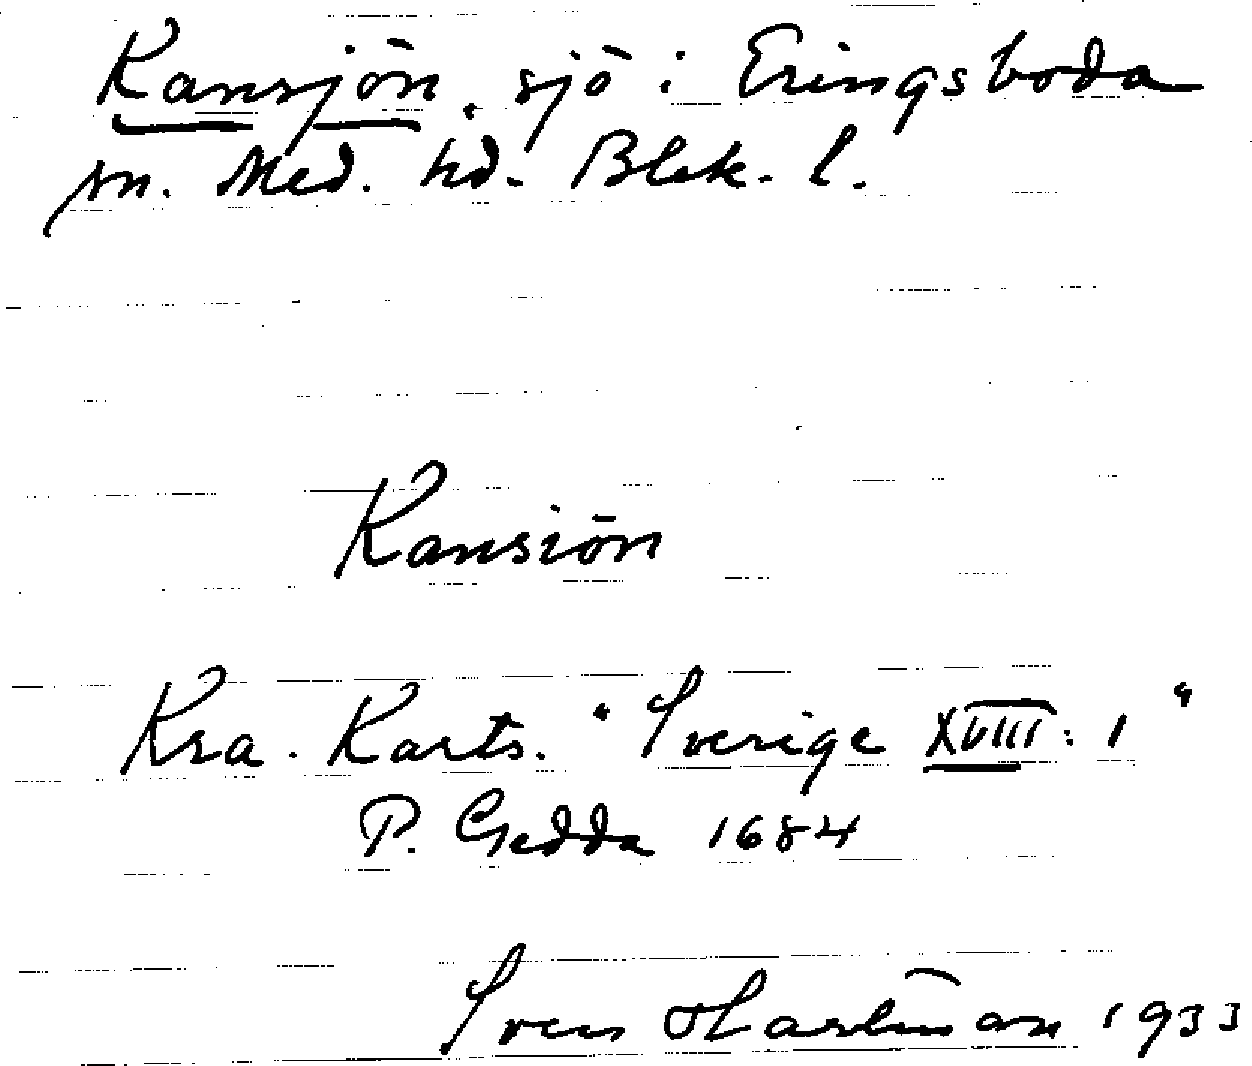 Kansjön, sjö i Eringsboda
sn. Med. hd. Blek. l.
Kansiön
Kra. Karts. "Sverige XVIII: 1"
P. Gedda 1684
Sven Hartman 1933